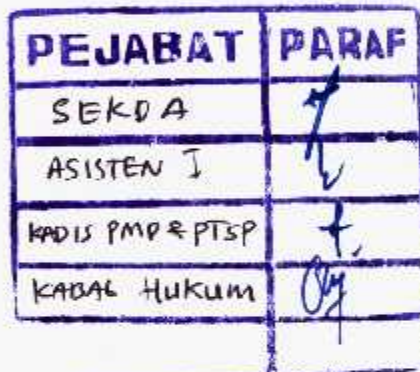 PEJABAT PARAF
SEKDA
ASISTEN I
KADIS PMP & PTSP
KABAG HUKUM